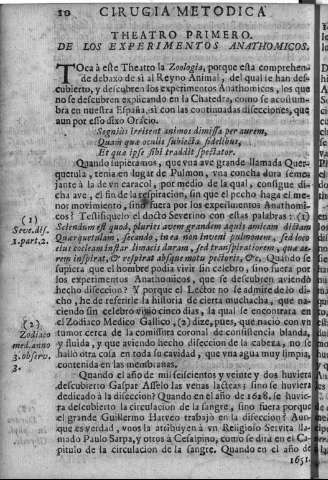 10 CIRUGIA METODICA
THEATRO PRIMERO.
DE LOS EXPERIMENTOS ANATHOMICOS.
TOca à este Theatro la Zoologia, porque esta comprehen-
de debaxo de si al Reyno Animal, del qual se han des-
cubierto, y descubren los experimentos Anathomicos, los que
no se descubren explicando en la Chatedra, como se acostum-
bra en nuestra España, si con las continuadas disecciones, que
aun por esso dixo Oracio.
Segniùs irritent animos dimissa per aurem,
Quam quæ oculis subiecta fidelibus,
Et quæ ipse sibi traddit spectator.
Quando supieramos, que vna ave grande llamada Quer-
quetula, tenia en lugar de Pulmon, vna concha dura seme-
jante à la de vn caracol, por medio de la qual, consigue di-
cha ave, el fin de la respiracion, sin que el pecho haga el me-
nor movimiento, sino fuera por los experimentos Anathomi-
cos? Testifiquelo el docto Severino con estas palabras: (1)
Sciendum est quod, pluries avem grandem aquis amicam dictam
Querquetulam, secando, in ea non inveni pulmonem, sed loco
eius cocleam instar limacis duram, sed transpiratoriam, quæ ae-
rem inspirat, & respirat absque motu pectoris, &c. Quando se
supiera que el hombre podia vivir sin celebro, sino fuera por
los experimentos Anathomicos, que se descubren aviendo
hecho diseccion? Y porque el Lector no se admire de lo di-
cho, he de referirle la historia de cierta muchacha, que na-
ciendo sin celebro vivio cinco dias, la qual se encontrara en
el Zodiaco Medico Gallico, (2) dize, pues, que naciò con vn
tumor cerca de la comissura coronal de consistencia blanda,
y fluida, y que aviendo hecho diseccion de la cabeza, no se
hallò otra cosa en toda su cavidad, que vna agua muy limpia,
contenida en las membranas.
Quando el año de mil seiscientos y veinte y dos huviera
descubierto Gaspar Assello las venas lacteas; sino se huviera
dedicado à la diseccion? Quando en el año de 1628. se huvie-
ra descubierto la circulacion de la sangre, sino fuera porque
el grande Guillermo Harveo trabajò en la diseccion? Aun-
que es verdad, vnos la atribuyen à vn Religioso Servita lla-
mado Paulo Sarpa, y otros à Cesalpino, como se dirà en el Ca-
pitulo de la circulacion de la sangre. Quando en el año de
1651.
(1)
Seve. dis.
1. part. 2.
(2)
Zodiaco
med. anno
3. observ.
3.